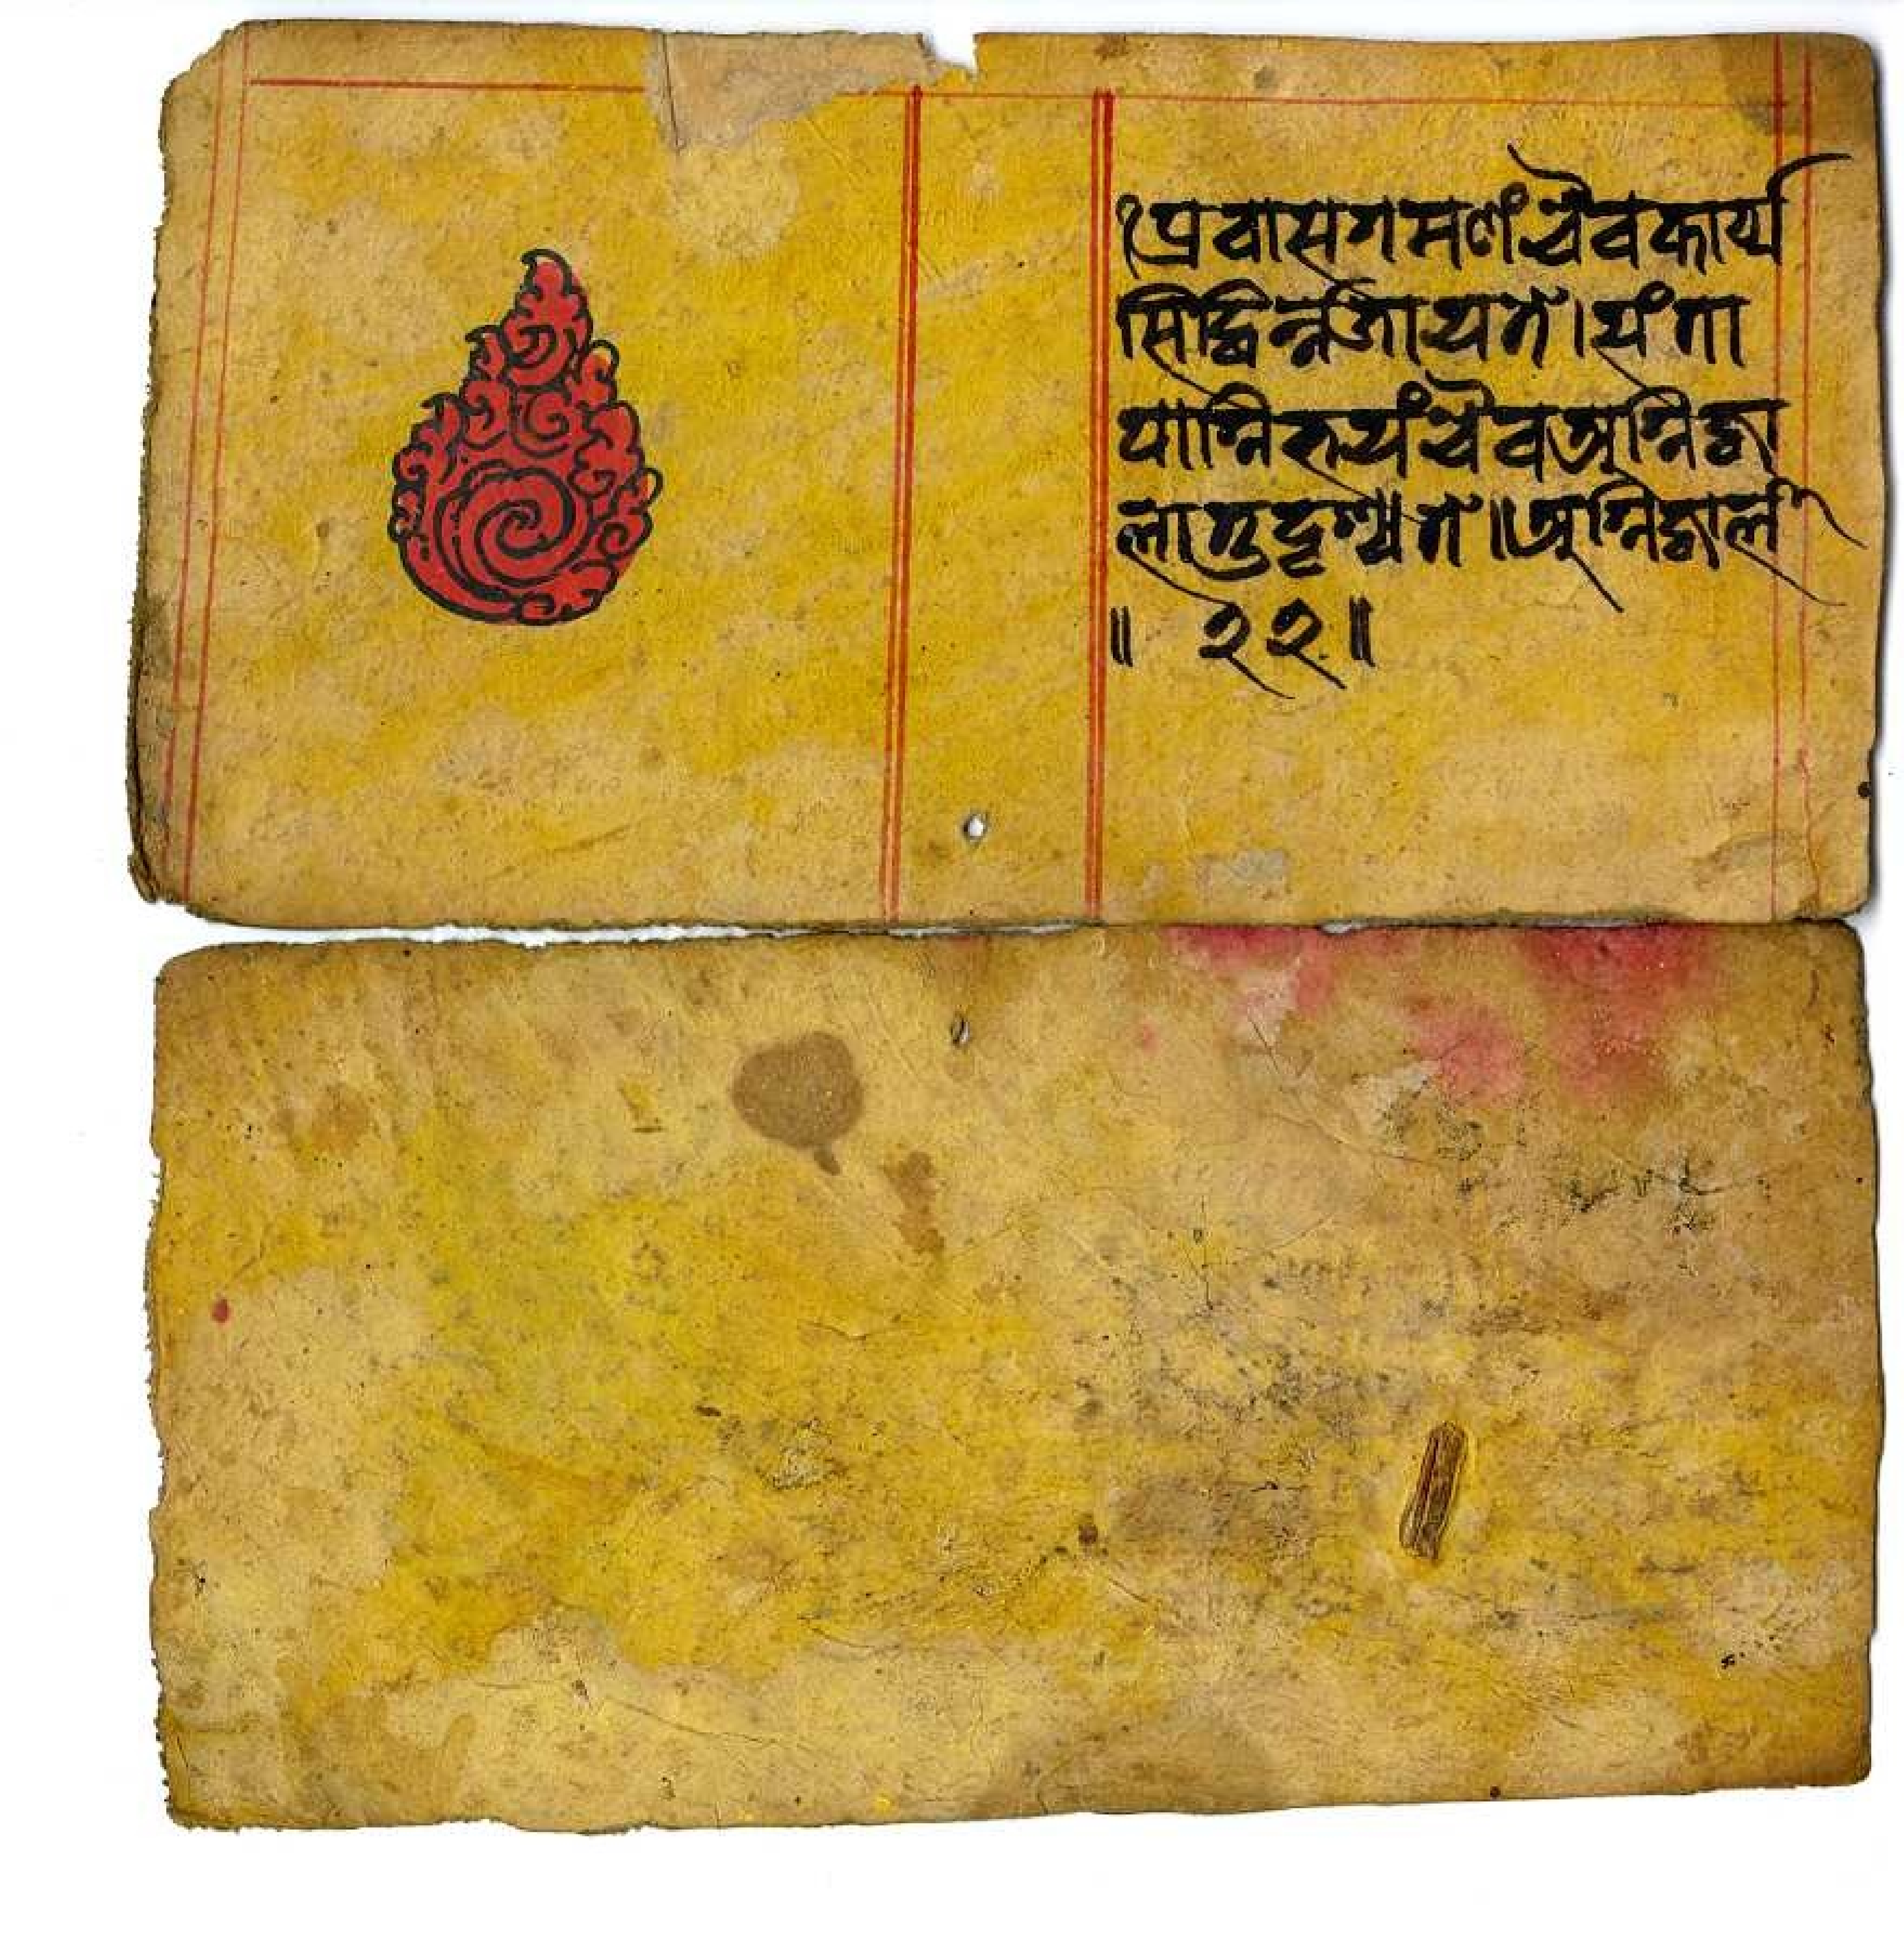 १प्रवासगमणंचैवकार्य्य
सिद्धिर्न्नजायते।यंगा
याग्निरुयंचैवअग्निज्वा
लातुदृश्यते॥अग्निज्वाल
॥ २२॥